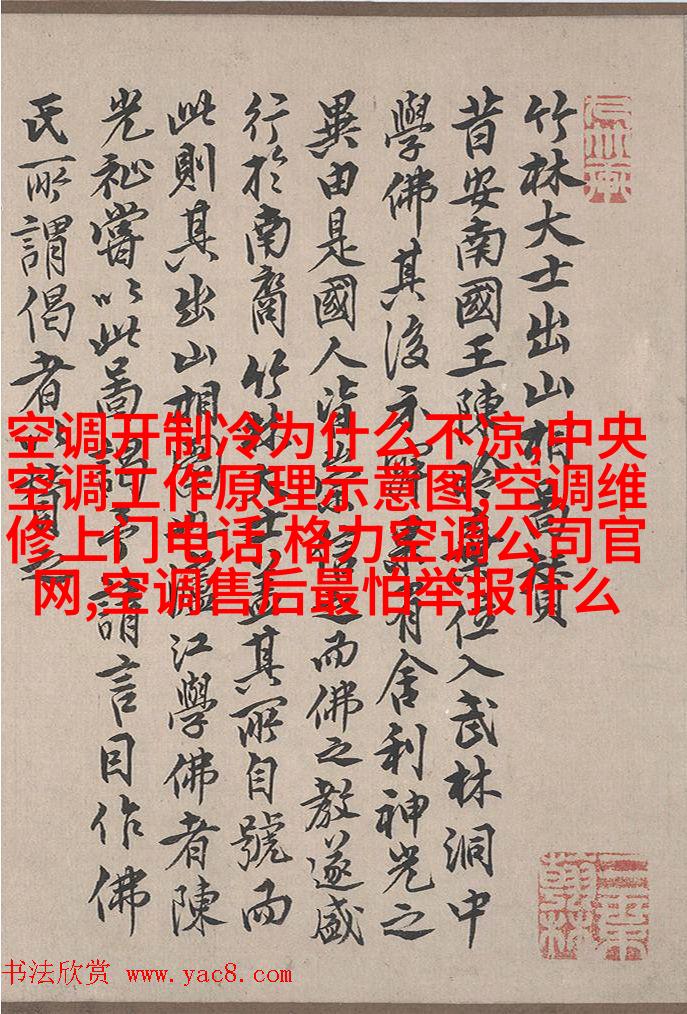 竹林大士出山相啚贊
昔安南國王陳位入武林洞中
學佛其後示有舍利神光之
異由是國人皆崇之而佛之教遂盛
行於南裔竹林大士蓋其所自號而
此則其出山相圖也瀘江學佛者陳
光祉嘗以此啚謁予請言目作佛
氏所謂偈者以贊之
空调开制冷为什么不凉,中央
空调工作原理示意图,空调维
修上门电话,格力空调公司官
网,空调售后最怕举报什么
书法欣赏 www.yac8.com